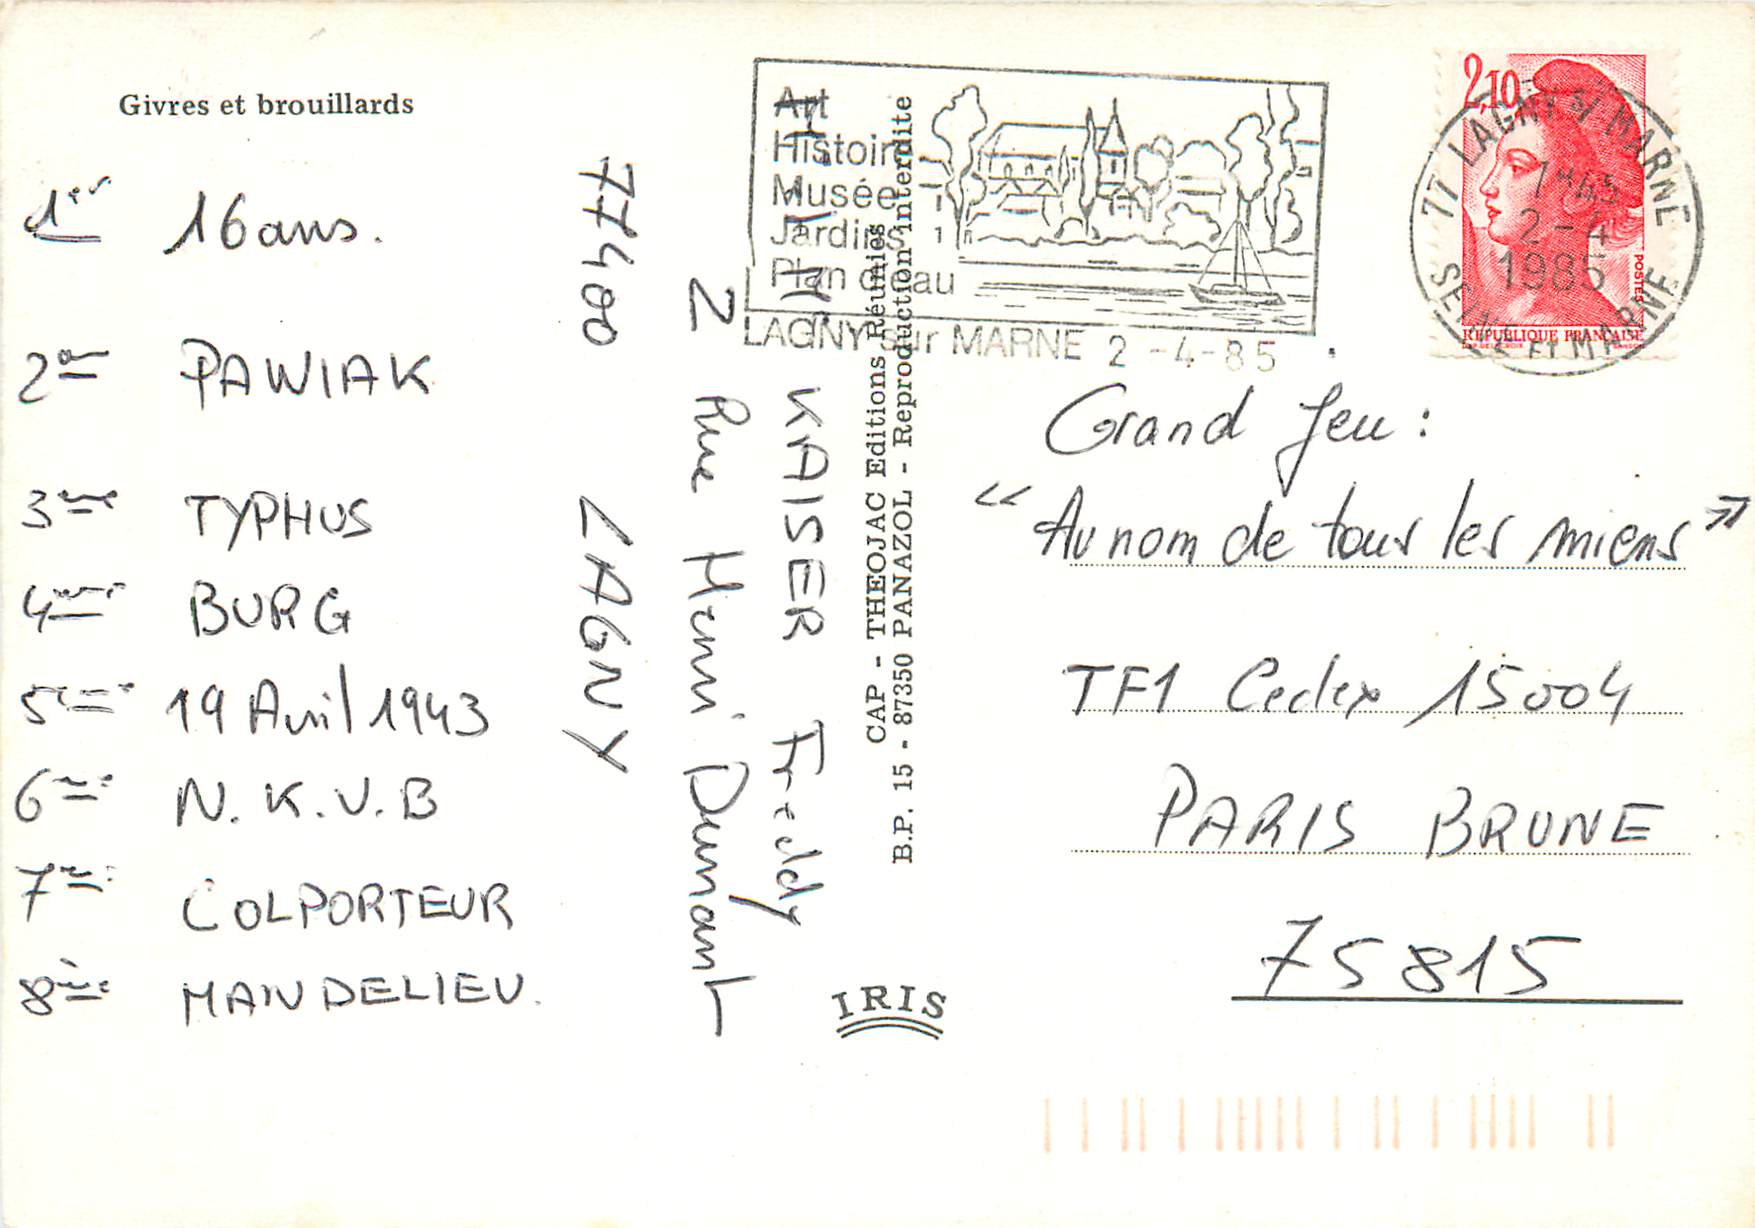 Givres et brouillards
1er 16 ans.
2em PAWIAK
3eme TYPHUS
4eme BURG
5eme 19 Avril 1943
6eme N.K.V.B
7eme COLPORTEUR
8ème MANDELIEU.
KAISER Freddy
2 Rue Henri Dunant
77400 LAGNY
CAP - THEOJAC Editions Réunies
B.P. 15 - 87350 PANAZOL - Reproduction interdite
IRIS
Art
Histoire
Musée
Jardins
Plan d'eau
LAGNY sur MARNE 2 -4-85
2,10
POSTES
REPUBLIQUE FRANÇAISE
77 LAGNY S/ MARNE
2-4
1985
SEINE ET MARNE
Grand Jeu :
"Au nom de tous les miens"
TF1 Cedex 15004
PARIS BRUNE
75815